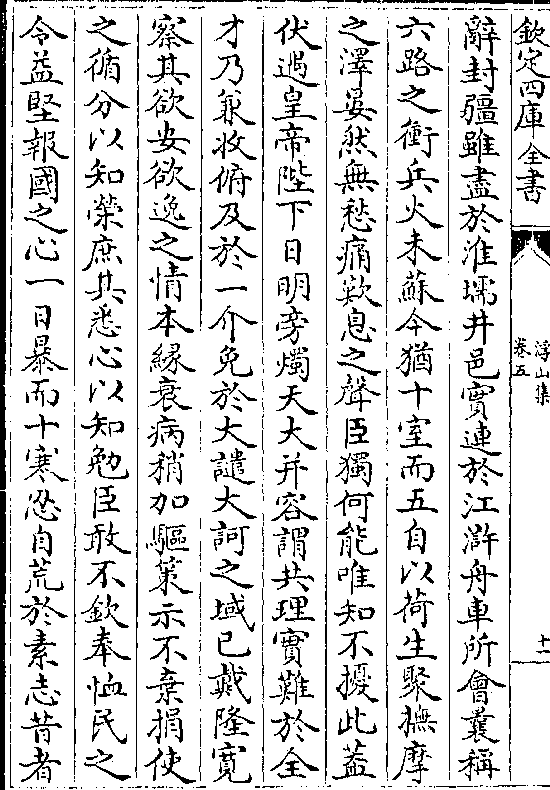 欽定四庫全書
浮山集
卷五
十一
辭封疆雖盡於淮壖井邑實連於江滸舟車所會叢稱
六路之衝兵火未蘇今猶十室而五自以荷生聚撫摩
之澤晏然無愁痛歎息之聲臣獨何能唯知不擾此蓋
伏遇皇帝陛下日明旁燭天大并容謂共理實難於全
才乃兼收俯及於一介免於大譴大訶之域已戴隆寛
察其欲安欲逸之情本緣衰病稍加驅策示不棄捐使
之循分以知榮庶其悉心以知勉臣敢不欽奉恤民之
令益堅報國之心一日暴而十寒恐自荒於素志昔者